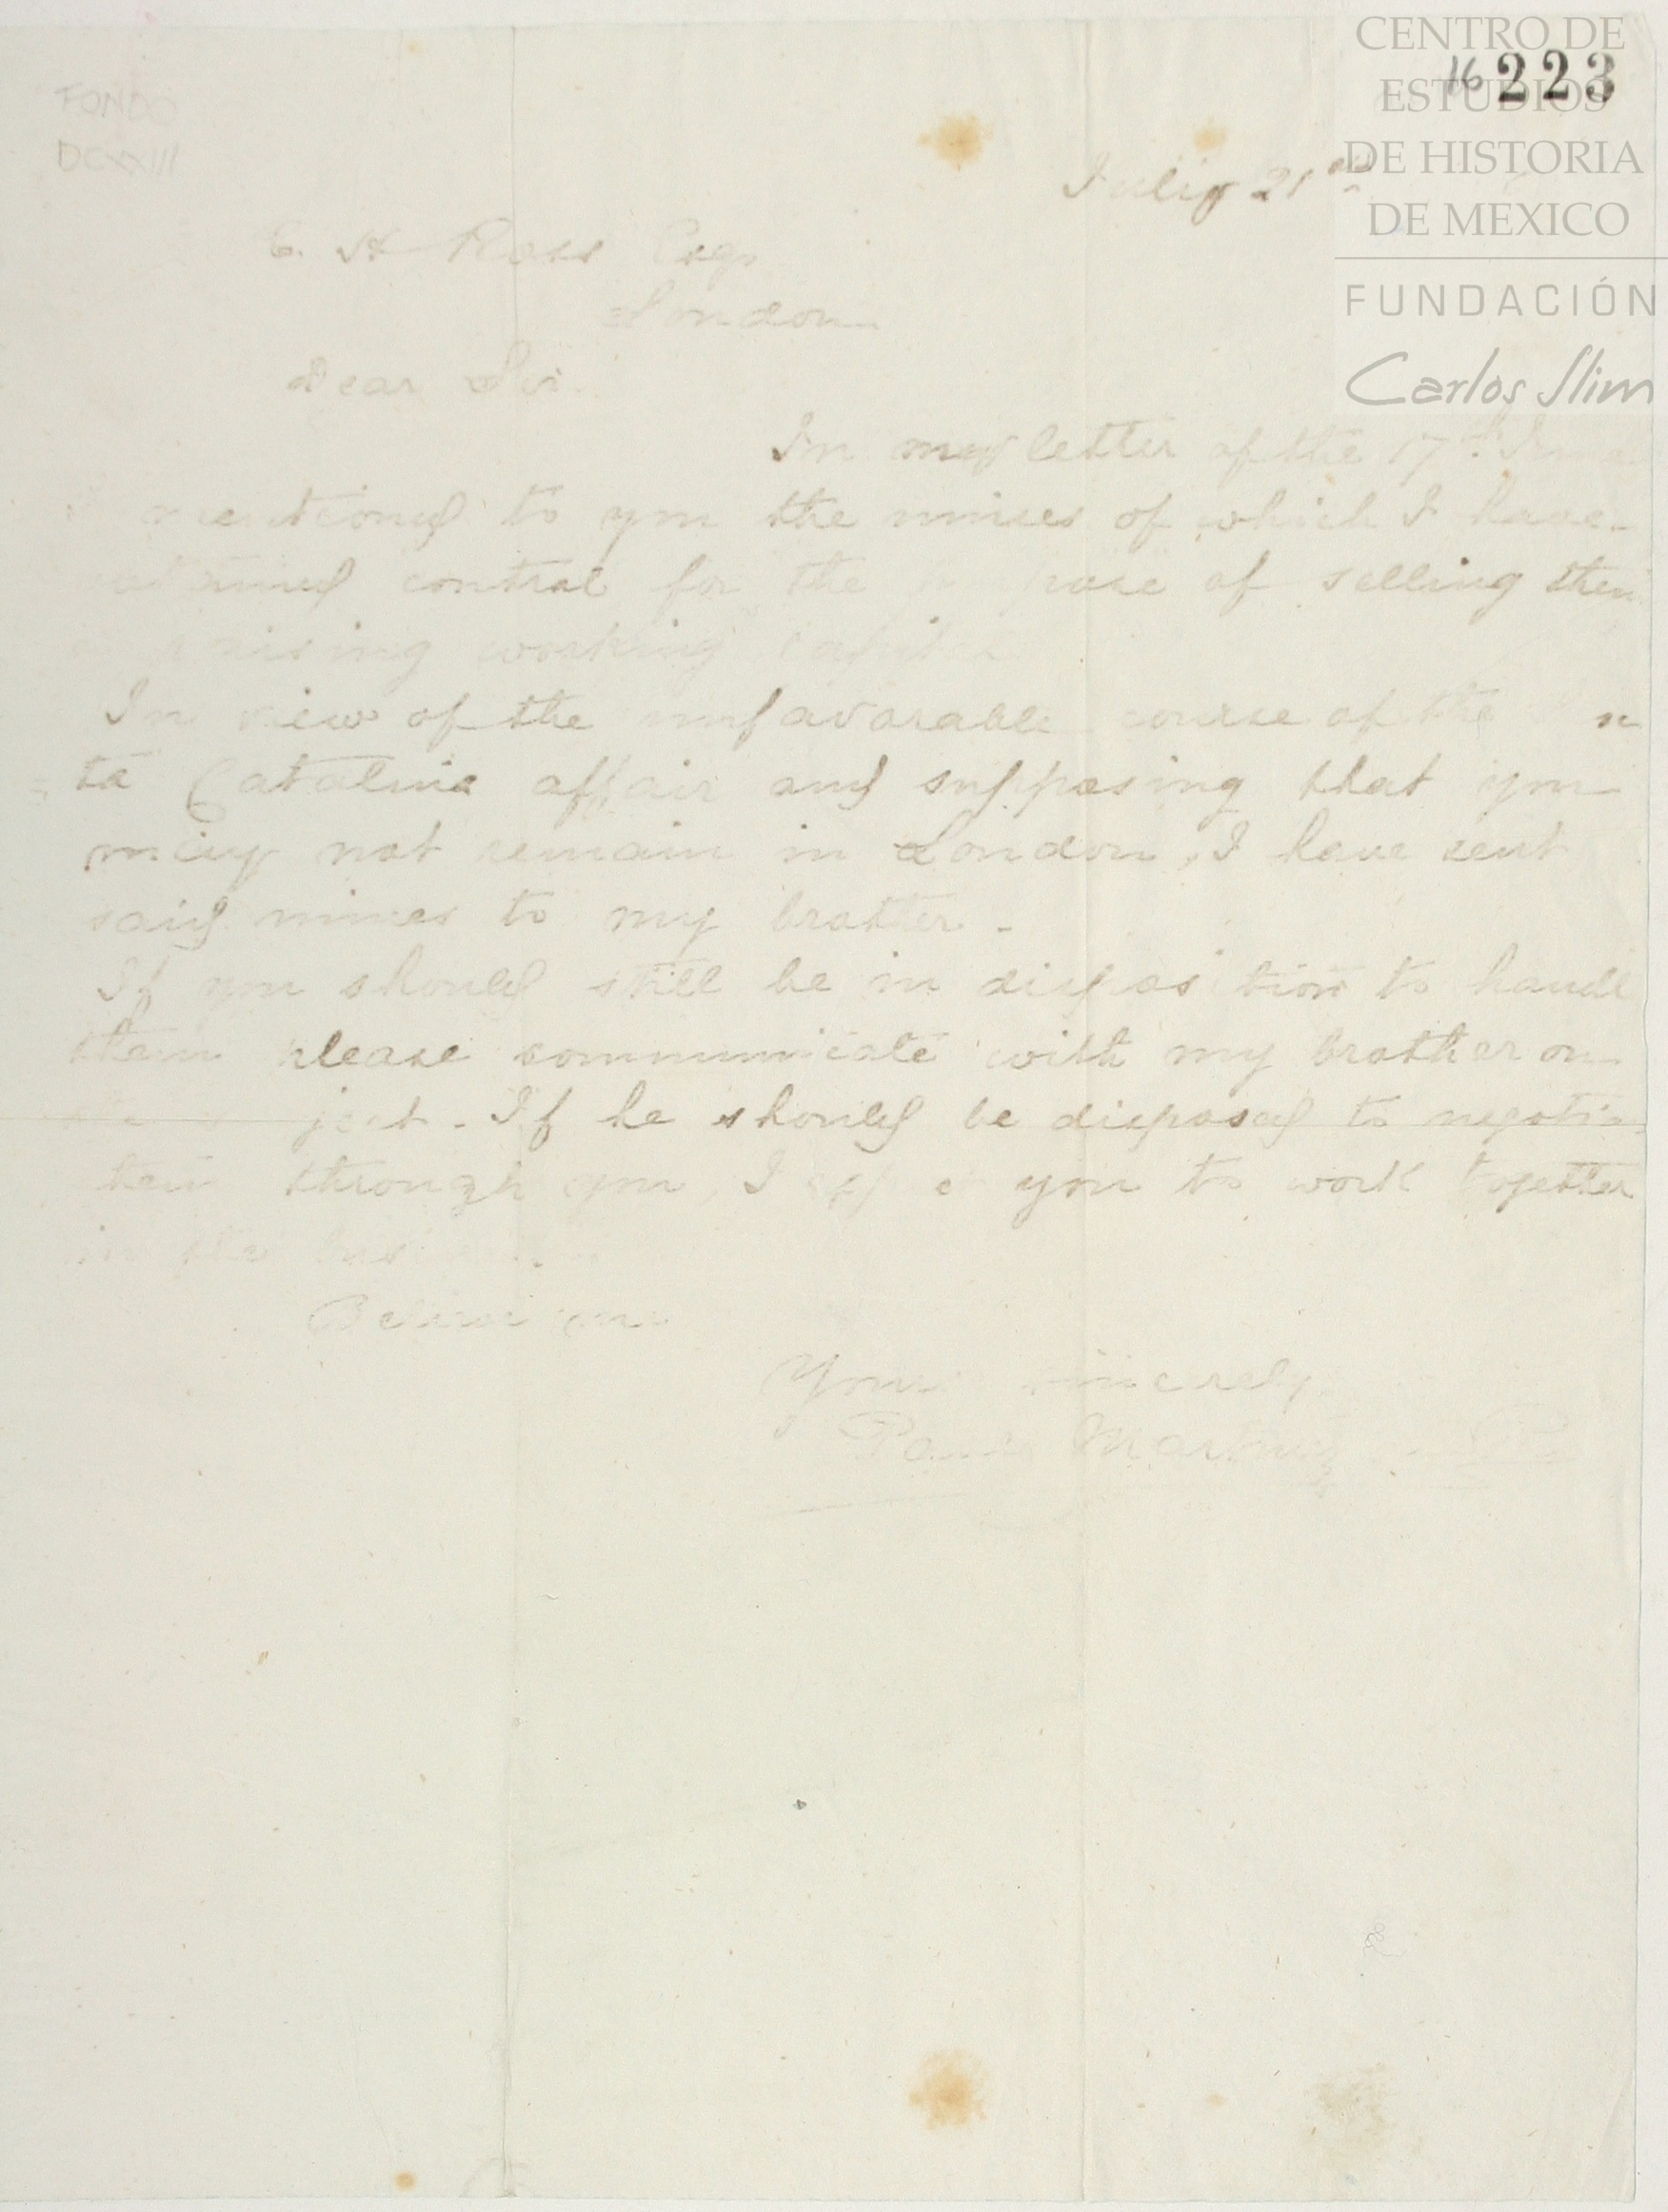 CENTRO DE
ESTUDIOS
DE HISTORIA
DE MEXICO
FUNDACIÓN
Carlos Slim
16 223
FONDO
DCXXIII
July 21
E. H Ross Esq.
London
Dear Sir.
In my letter of the 17th
mentioned to you the mines of which I have
control for the of selling them
raising working capital
In view of the unfavorable course of the
ta Catalina affair and supposing that you
may not remain in London, I have sent
said mines to my brother.
If you should still be in disposition to handle
them please communicate with my brother on
If he should be disposed to
through you, I you to work together
in the
Believe me
Yours sincerely